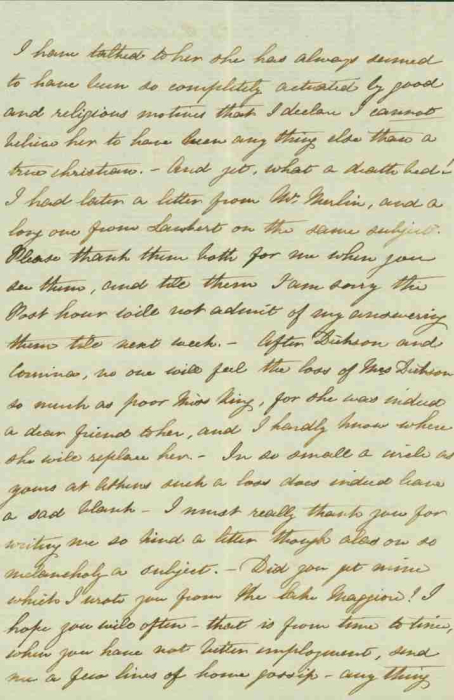 I have talked to her she has always seemed
to have been so completely actuated by good
and religious motives that I declare I cannot
believe her to have been any thing else than a
true christian. - And yet, what a death bed!
I had later a letter from Mr Merlin, and a
long one from Lambert on the same subject.
Please thank them both for me when you
see them, and tell them I am sorry the
Post hour will not admit of my answering
them till next week. - After Dickson and
Corinna, no one will feel the loss of Mrs Dickson
so much as poor Miss King, for she was indeed
a dear friend to her, and I hardly know where
she will replace her. - In so small a circle as
yours at Athens such a loss does indeed leave
a sad blank - I must really thank you for
writing me so kind a letter though alas on so
melancholy a subject. - Did you get mine
which I wrote you from the Lake Maggiore? I
hope you will often - that is from time to time,
when you have not better employment, send
me a few lines of home gossip - any thing